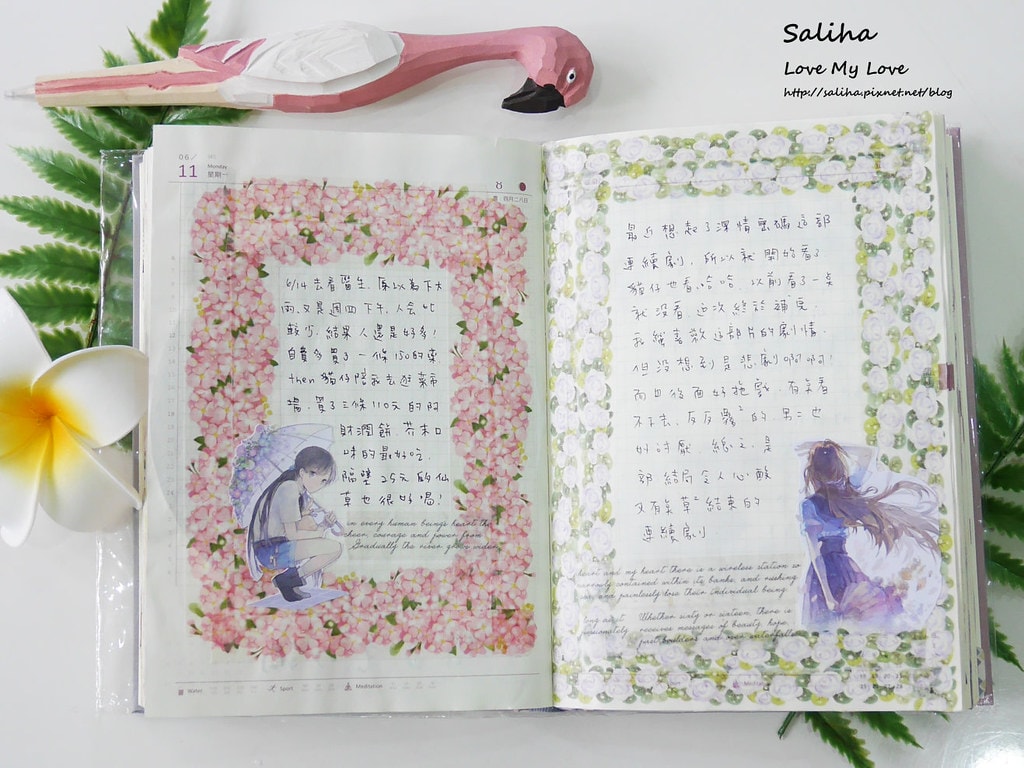 Saliha
Love My Love
http://saliha.pixnet.net/blog
06/
11
Monday
星期一
四月二八日
6/14去看醫生,原以為下大
雨,又是週四下午,人会比
較少,結果人還是好多!
自費多買了一條150的藥
then貓仔陪我去逛菜市
場,買了三條110元的阿
財潤餅,芥末口
味的最好吃,
隔壁25元的仙
草也很好喝!
in every human beings heart the
cheer, courage and power from
Gradually the river grows wider
Water
Sport
Meditation
最近想起了深情密碼這部
連續劇,所以就開始看了
貓仔也看哈哈,以前看了一点
就沒看,这次終於補完
我經喜歡這部片的劇情
但沒想到是悲劇啊啊!
而且後面好拖戲,有点看
不下去,反反覆²的男二也
好討厭,總之,是
部結局令人心酸
又有点草²結束的
連續劇
heart and my heart there is a wireless station so
narrowly contained within its banks, and rushing
and painlessly lose their individual being.
Whether sixty or sixteen, there is
passionately
receives messages of beauty, hope,
past boulders and over waterfalls